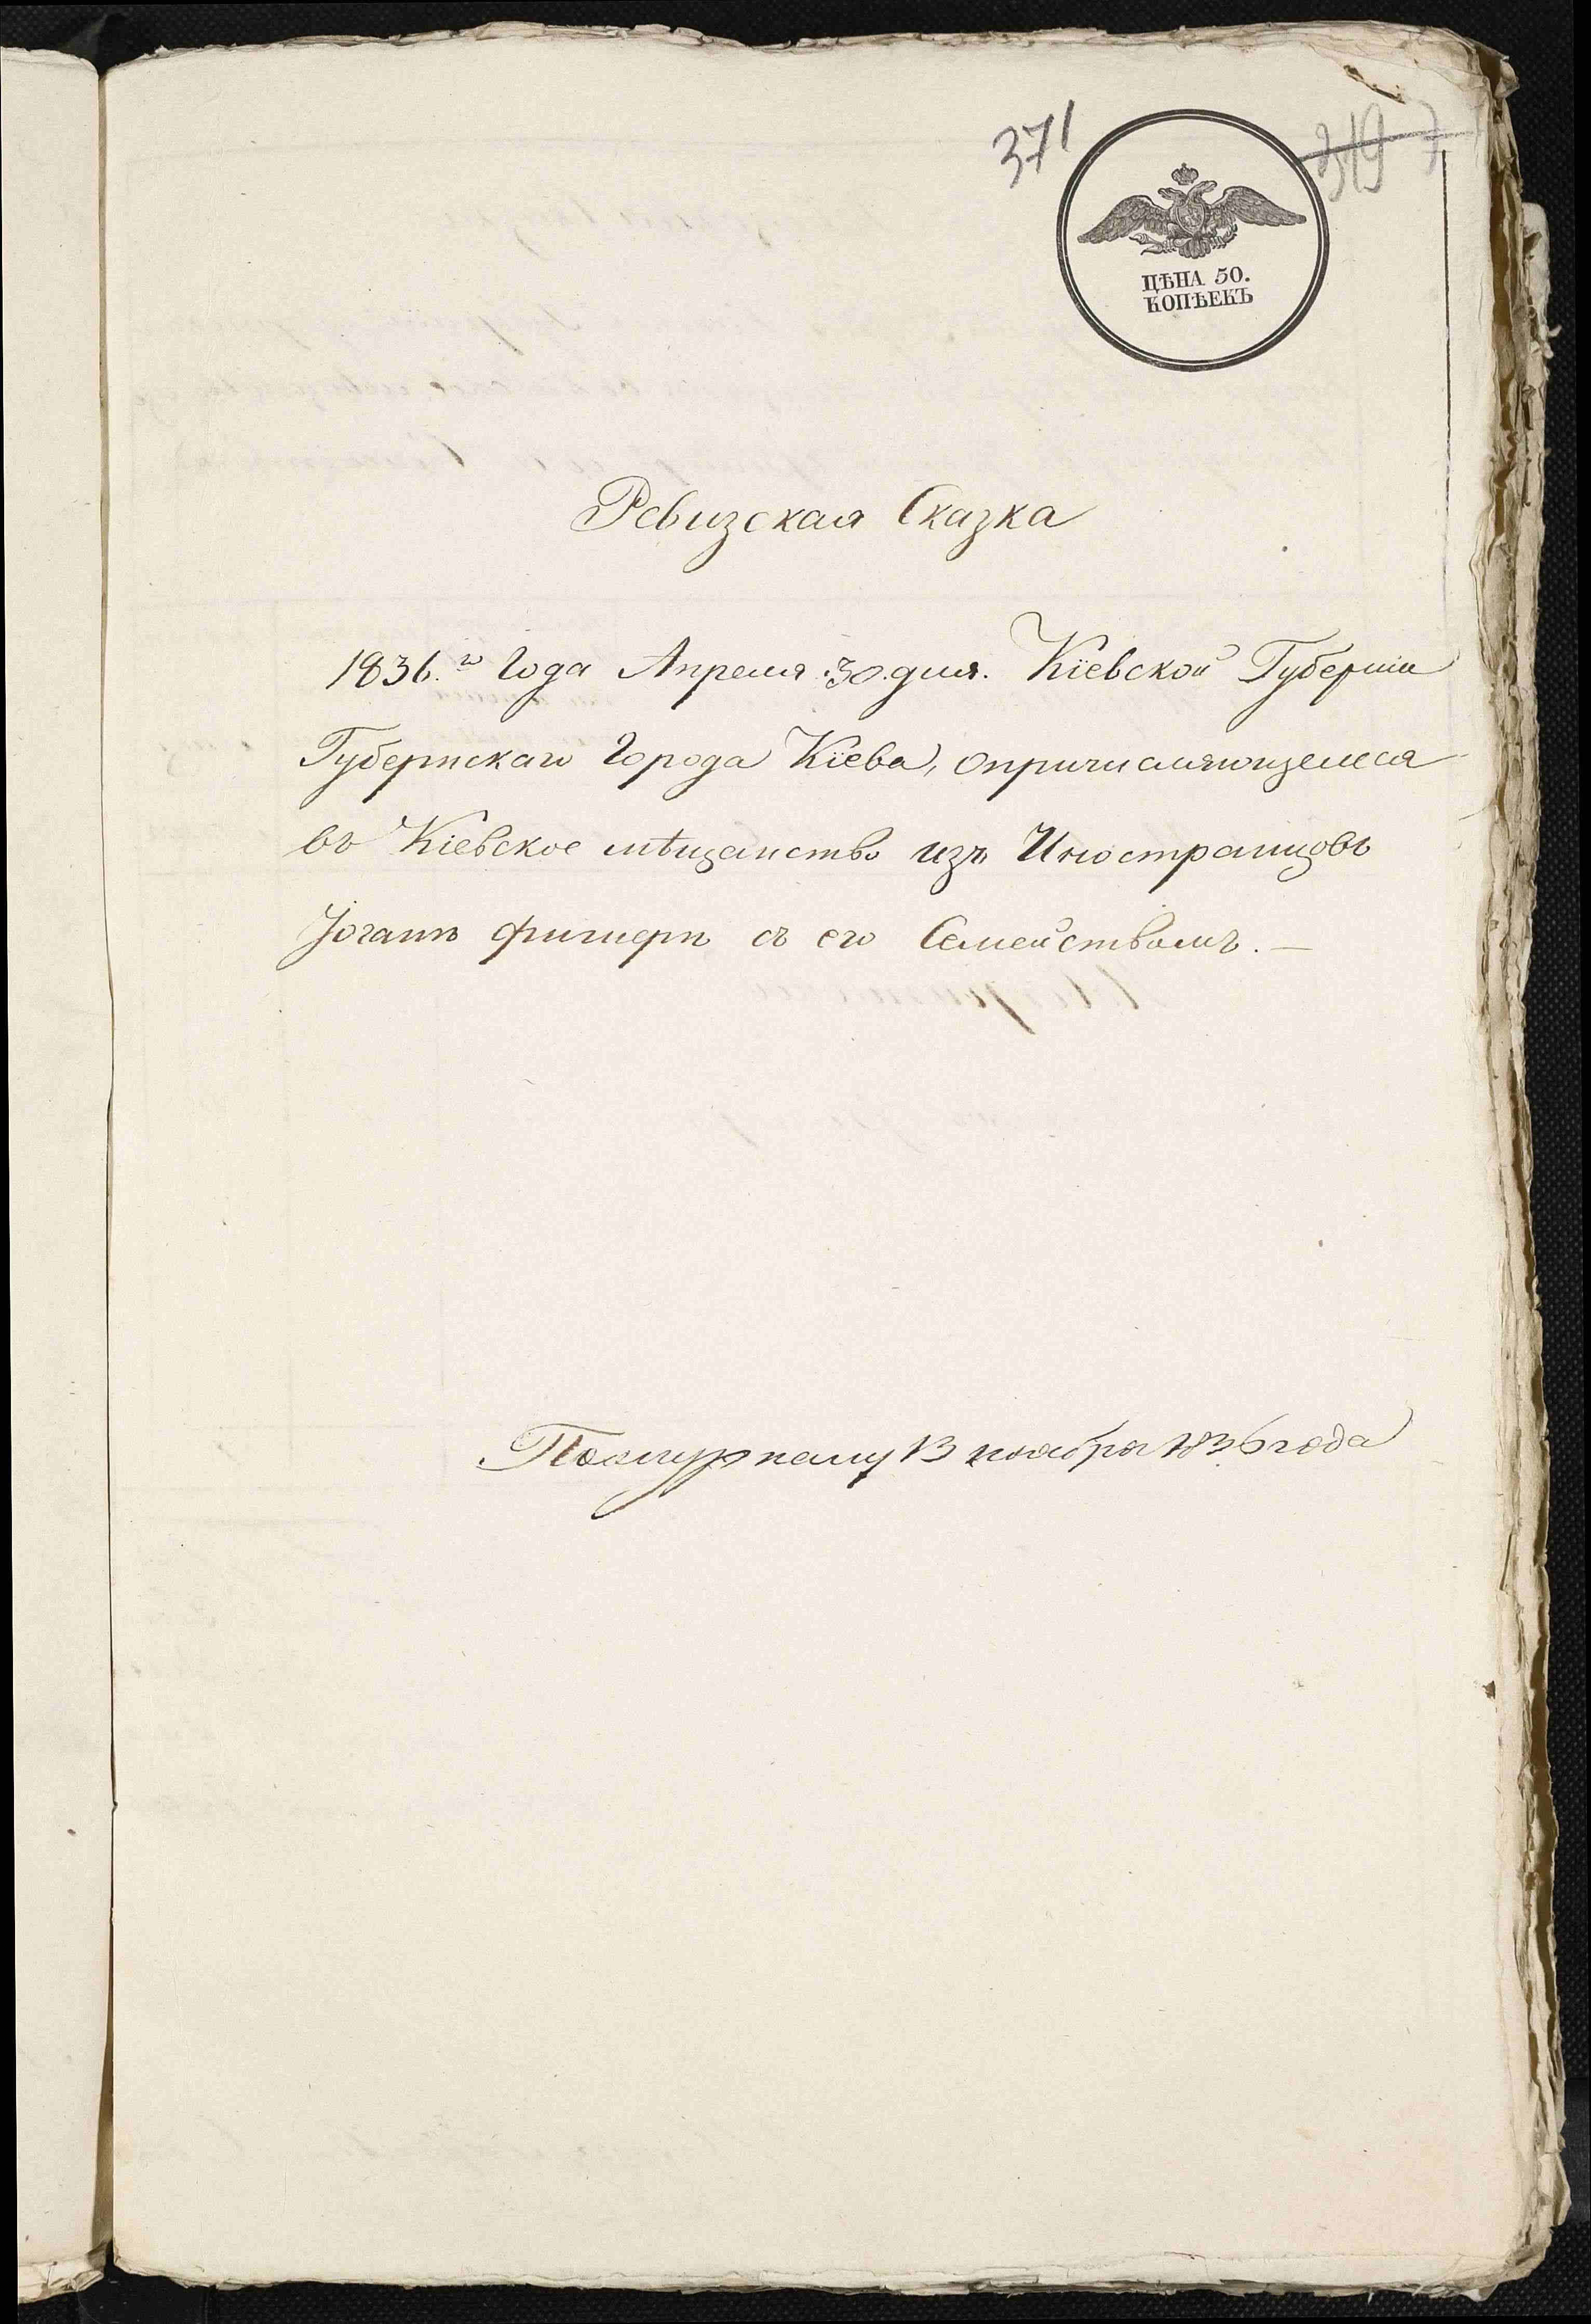 371
319
ЦѢНА 50.
КОПѢЕКЪ
Ревизская Сказка
1836.го Года Апреля :30. дня. Кіевской Губерніи
Губернскаго Города Кіева, опричисляющемся
въ Кіевское мѣщанство изъ Иностранцовъ
Іоганъ фишеръ съ его Семействомъ. —
По журналу 13 ноября 1836 года